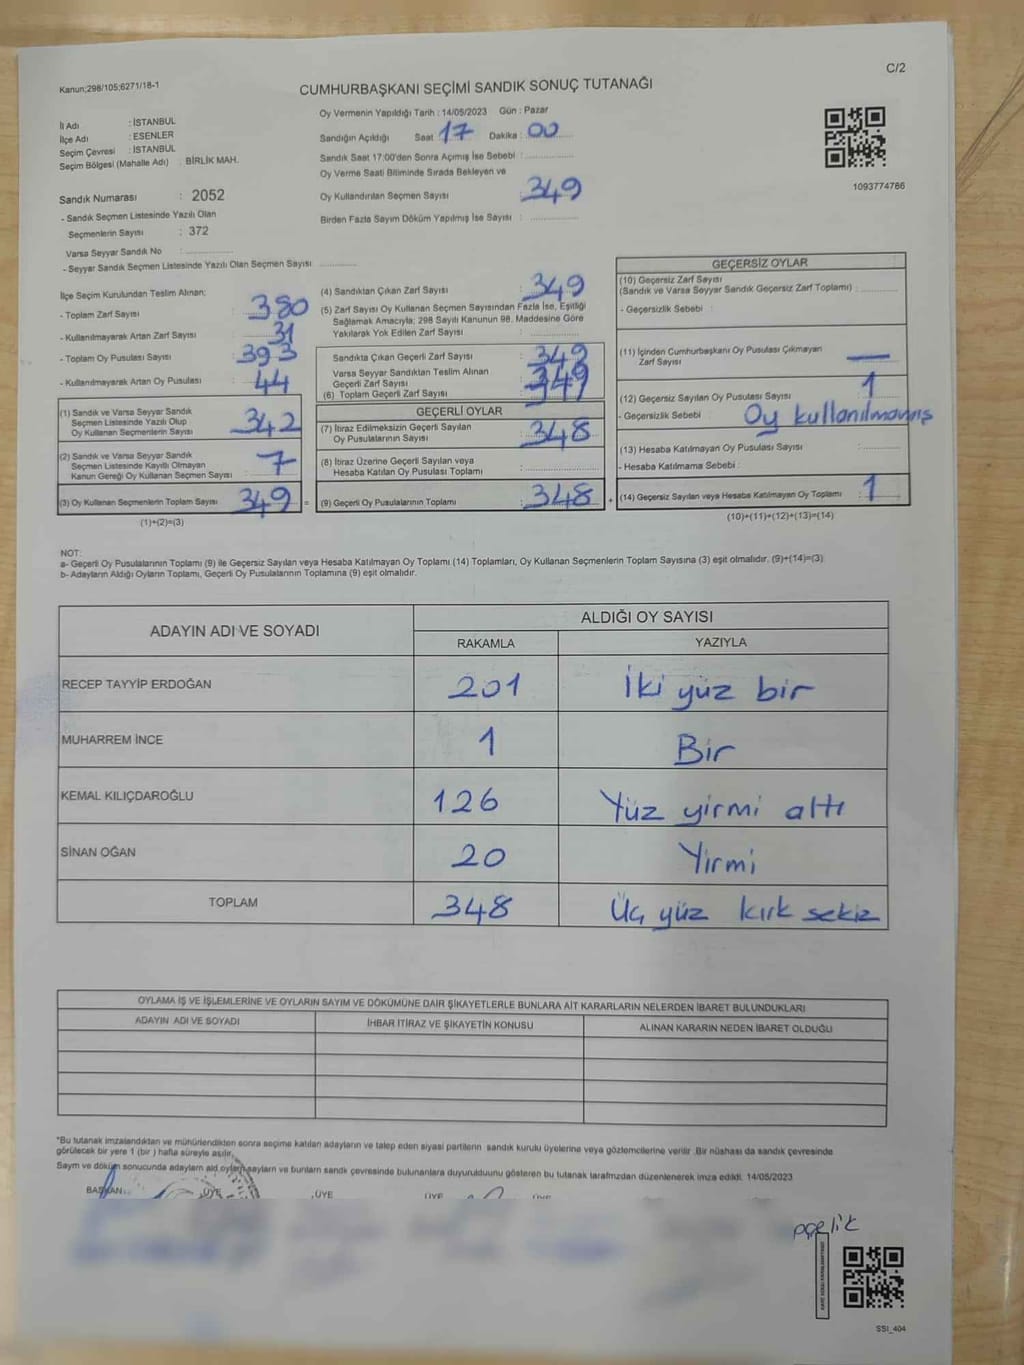 C/2
Kanun;298/105;6271/18-1
CUMHURBAŞKANI SEÇİMİ SANDIK SONUÇ TUTANAĞI
İl Adı : İSTANBUL
İlçe Adı : ESENLER
Seçim Çevresi : İSTANBUL
Seçim Bölgesi (Mahalle Adı) : BİRLİK MAH.
Oy Vermenin Yapıldığı Tarih : 14/05/2023 Gün : Pazar
Sandığın Açıldığı Saat : 17 Dakika : 00
Sandık Saat 17:00'den Sonra Açımış İse Sebebi :
Oy Verme Saati Bitiminde Sırada Bekleyen ve
Oy Kullandırılan Seçmen Sayısı : 349
Birden Fazla Sayım Döküm Yapılmış İse Sayısı :
1093774786
Sandık Numarası : 2052
- Sandık Seçmen Listesinde Yazılı Olan
Seçmenlerin Sayısı : 372
Varsa Seyyar Sandık No :
- Seyyar Sandık Seçmen Listesinde Yazılı Olan Seçmen Sayısı
İlçe Seçim Kurulundan Teslim Alınan:
- Toplam Zarf Sayısı : 380
- Kullanılmayarak Artan Zarf Sayısı : 31
- Toplam Oy Pusulası Sayısı : 393
- Kullanılmayarak Artan Oy Pusulası : 44
(1) Sandık ve Varsa Seyyar Sandık
Seçmen Listesinde Yazılı Olup
Oy Kullanan Seçmenlerin Sayısı : 342
(2) Sandık ve Varsa Seyyar Sandık
Seçmen Listesinde Kayıtlı Olmayan
Kanun Gereği Oy Kullanan Seçmen Sayısı : 7
(3) Oy Kullanan Seçmenlerin Toplam Sayısı : 349 =
(1)+(2)=(3)
(4) Sandıktan Çıkan Zarf Sayısı : 349
(5) Zarf Sayısı Oy Kullanan Seçmen Sayısından Fazla İse, Eşitliği
Sağlamak Amacıyla; 298 Sayılı Kanunun 98. Maddesine Göre
Yakılarak Yok Edilen Zarf Sayısı :
Sandıkta Çıkan Geçerli Zarf Sayısı : 349
Varsa Seyyar Sandıktan Teslim Alınan
Geçerli Zarf Sayısı :
(6) Toplam Geçerli Zarf Sayısı : 349
GEÇERLİ OYLAR
(7) İtiraz Edilmeksizin Geçerli Sayılan
Oy Pusulalarının Sayısı : 348
(8) İtiraz Üzerine Geçerli Sayılan veya
Hesaba Katılan Oy Pusulası Toplamı :
(9) Geçerli Oy Pusulalarının Toplamı : 348 +
GEÇERSİZ OYLAR
(10) Geçersiz Zarf Sayısı
(Sandık ve Varsa Seyyar Sandık Geçersiz Zarf Toplamı) :
- Geçersizlik Sebebi :
(11) İçinden Cumhurbaşkanı Oy Pusulası Çıkmayan
Zarf Sayısı : —
(12) Geçersiz Sayılan Oy Pusulası Sayısı : 1
- Geçersizlik Sebebi : Oy kullanılmamış
(13) Hesaba Katılmayan Oy Pusulası Sayısı :
- Hesaba Katılmama Sebebi :
(14) Geçersiz Sayılan veya Hesaba Katılmayan Oy Toplamı : 1
(10)+(11)+(12)+(13)=(14)
NOT:
a- Geçerli Oy Pusulalarının Toplamı (9) ile Geçersiz Sayılan veya Hesaba Katılmayan Oy Toplamı (14) Toplamları, Oy Kullanan Seçmenlerin Toplam Sayısına (3) eşit olmalıdır. (9)+(14)=(3)
b- Adayların Aldığı Oyların Toplamı, Geçerli Oy Pusulalarının Toplamına (9) eşit olmalıdır.
ADAYIN ADI VE SOYADI ALDIĞI OY SAYISI
RAKAMLA YAZIYLA
RECEP TAYYİP ERDOĞAN 201 İki yüz bir
MUHARREM İNCE 1 Bir
KEMAL KILIÇDAROĞLU 126 Yüz yirmi altı
SİNAN OĞAN 20 Yirmi
TOPLAM 348 Üç yüz kırk sekiz
OYLAMA İŞ VE İŞLEMLERİNE VE OYLARIN SAYIM VE DÖKÜMÜNE DAİR ŞİKAYETLERLE BUNLARA AİT KARARLARIN NELERDEN İBARET BULUNDUKLARI
ADAYIN ADI VE SOYADI İHBAR İTİRAZ VE ŞİKAYETİN KONUSU ALINAN KARARIN NEDEN İBARET OLDUĞU
*Bu tutanak imzalandıktan ve mühürlendikten sonra seçime katılan adayların ve talep eden siyasi partilerin sandık kurulu üyelerine veya gözlemcilerine verilir .Bir nüshası da sandık çevresinde
görülecek bir yere 1 (bir ) hafta süreyle asılır.
Sayım ve döküm sonucunda adayların ald oyların sayıları ve bunların sandık çevresinde bulunanlara duyurulduunu gösteren bu tutanak tarafımzdan düzenlenerek imza edildi. 14/05/2023
BAŞKAN ÜYE ÜYE ÜYE ÜYE
SSI_404